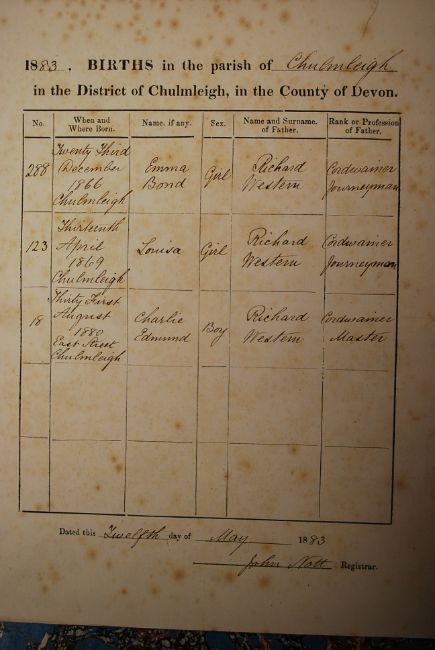 1883. BIRTHS in the parish of Chulmleigh
in the District of Chulmleigh, in the County of Devon.
No. When and Where Born. Name. if any. Sex. Name and Surname. of Father. Rank or Profession of Father.
288 Twenty Third December 1866 Chulmleigh Emma Bond Girl Richard Western Cordwainer Journeyman
123 Thirteenth April 1869 Chulmleigh Louisa Girl Richard Western Cordwainer Journeyman
18 Thirty First August 1880 East Street Chulmleigh Charlie Edmund Boy Richard Western Cordwainer Master
Dated this Twelfth day of May 1883
John Nott Registrar.